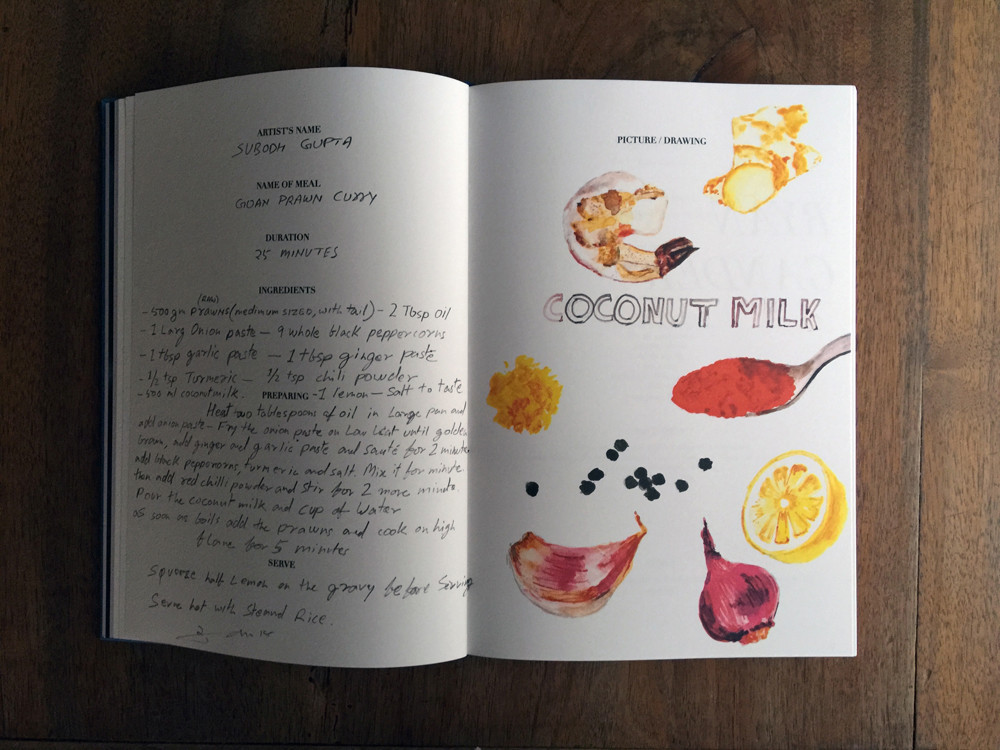 ARTIST'S NAME
SUBODH GUPTA
NAME OF MEAL
GOAN PRAWN CURRY
DURATION
25 MINUTES
INGREDIENTS
(RAW)
- 500 gm Prawns (medimum sized, with tail) - 2 Tbsp oil
- 1 Larg Onion paste - 9 whole black peppercorns
- 1 tbsp garlic paste - 1 tbsp ginger paste
- 1/2 tsp Turmeric - 1/2 tsp chili powder
- 500 ml coconutmilk. - 1 lemon - Salt to taste
PREPARING
Heat two tablespoons of oil in Large pan and
add onion paste - Fry the onion paste on Low heat until golden
brown, add ginger and garlic paste and sauté for 2 minutes
add black peppercorns, turmeric and salt. Mix it for minute.
then add red chilli powder and stir for 2 more minute.
Pour the coconut milk and cup of water
as soon as boils add the prawns and cook on high
flame for 5 minutes
SERVE
Squeeze half Lemon on the gravy before serving
Serve hot with Steamed Rice.
PICTURE / DRAWING
COCONUT MILK